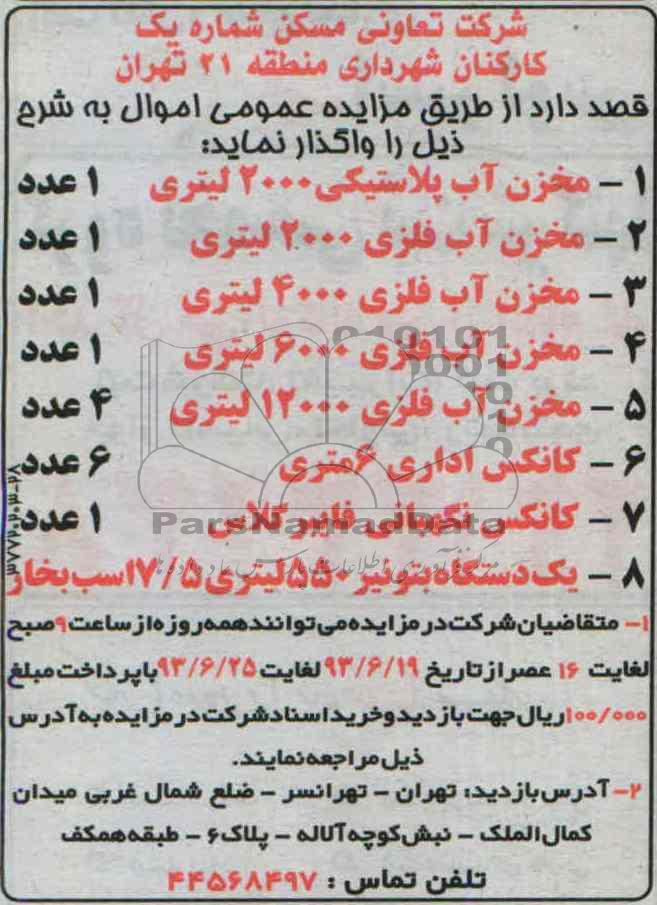 شرکت تعاونی مسکن شماره یک
کارکنان شهرداری منطقه ۲۱ تهران
قصد دارد از طریق مزایده عمومی اموال به شرح
ذیل را واگذار نماید:
۱ - مخزن آب پلاستیکی ۲۰۰۰ لیتری ۱ عدد
۲ - مخزن آب فلزی ۲۰۰۰ لیتری ۱ عدد
۳ - مخزن آب فلزی ۴۰۰۰ لیتری ۱ عدد
۴ - مخزن آب فلزی ۶۰۰۰ لیتری ۱ عدد
۵ - مخزن آب فلزی ۱۲۰۰۰ لیتری ۴ عدد
۶ - کانکس اداری ۶ متری ۶ عدد
۷ - کانکس نگهبانی فایبرگلاس ۱ عدد
۸ - یک دستگاه بتونیر ۵۵۰ لیتری ۱۷/۵ اسب بخار
۱- متقاضیان شرکت در مزایده می توانند همه روزه از ساعت ۹ صبح
لغایت ۱۶ عصر از تاریخ ۹۳/۶/۱۹ لغایت ۹۳/۶/۲۵ با پرداخت مبلغ
۱۰۰/۰۰۰ ریال جهت بازدید و خرید اسناد شرکت در مزایده به آدرس
ذیل مراجعه نمایند.
۲- آدرس بازدید: تهران - تهرانسر - ضلع شمال غربی میدان
کمال الملک - نبش کوچه آلاله - پلاک ۶ - طبقه همکف
تلفن تماس : ۴۴۵۶۸۴۹۷
ParsNamadData